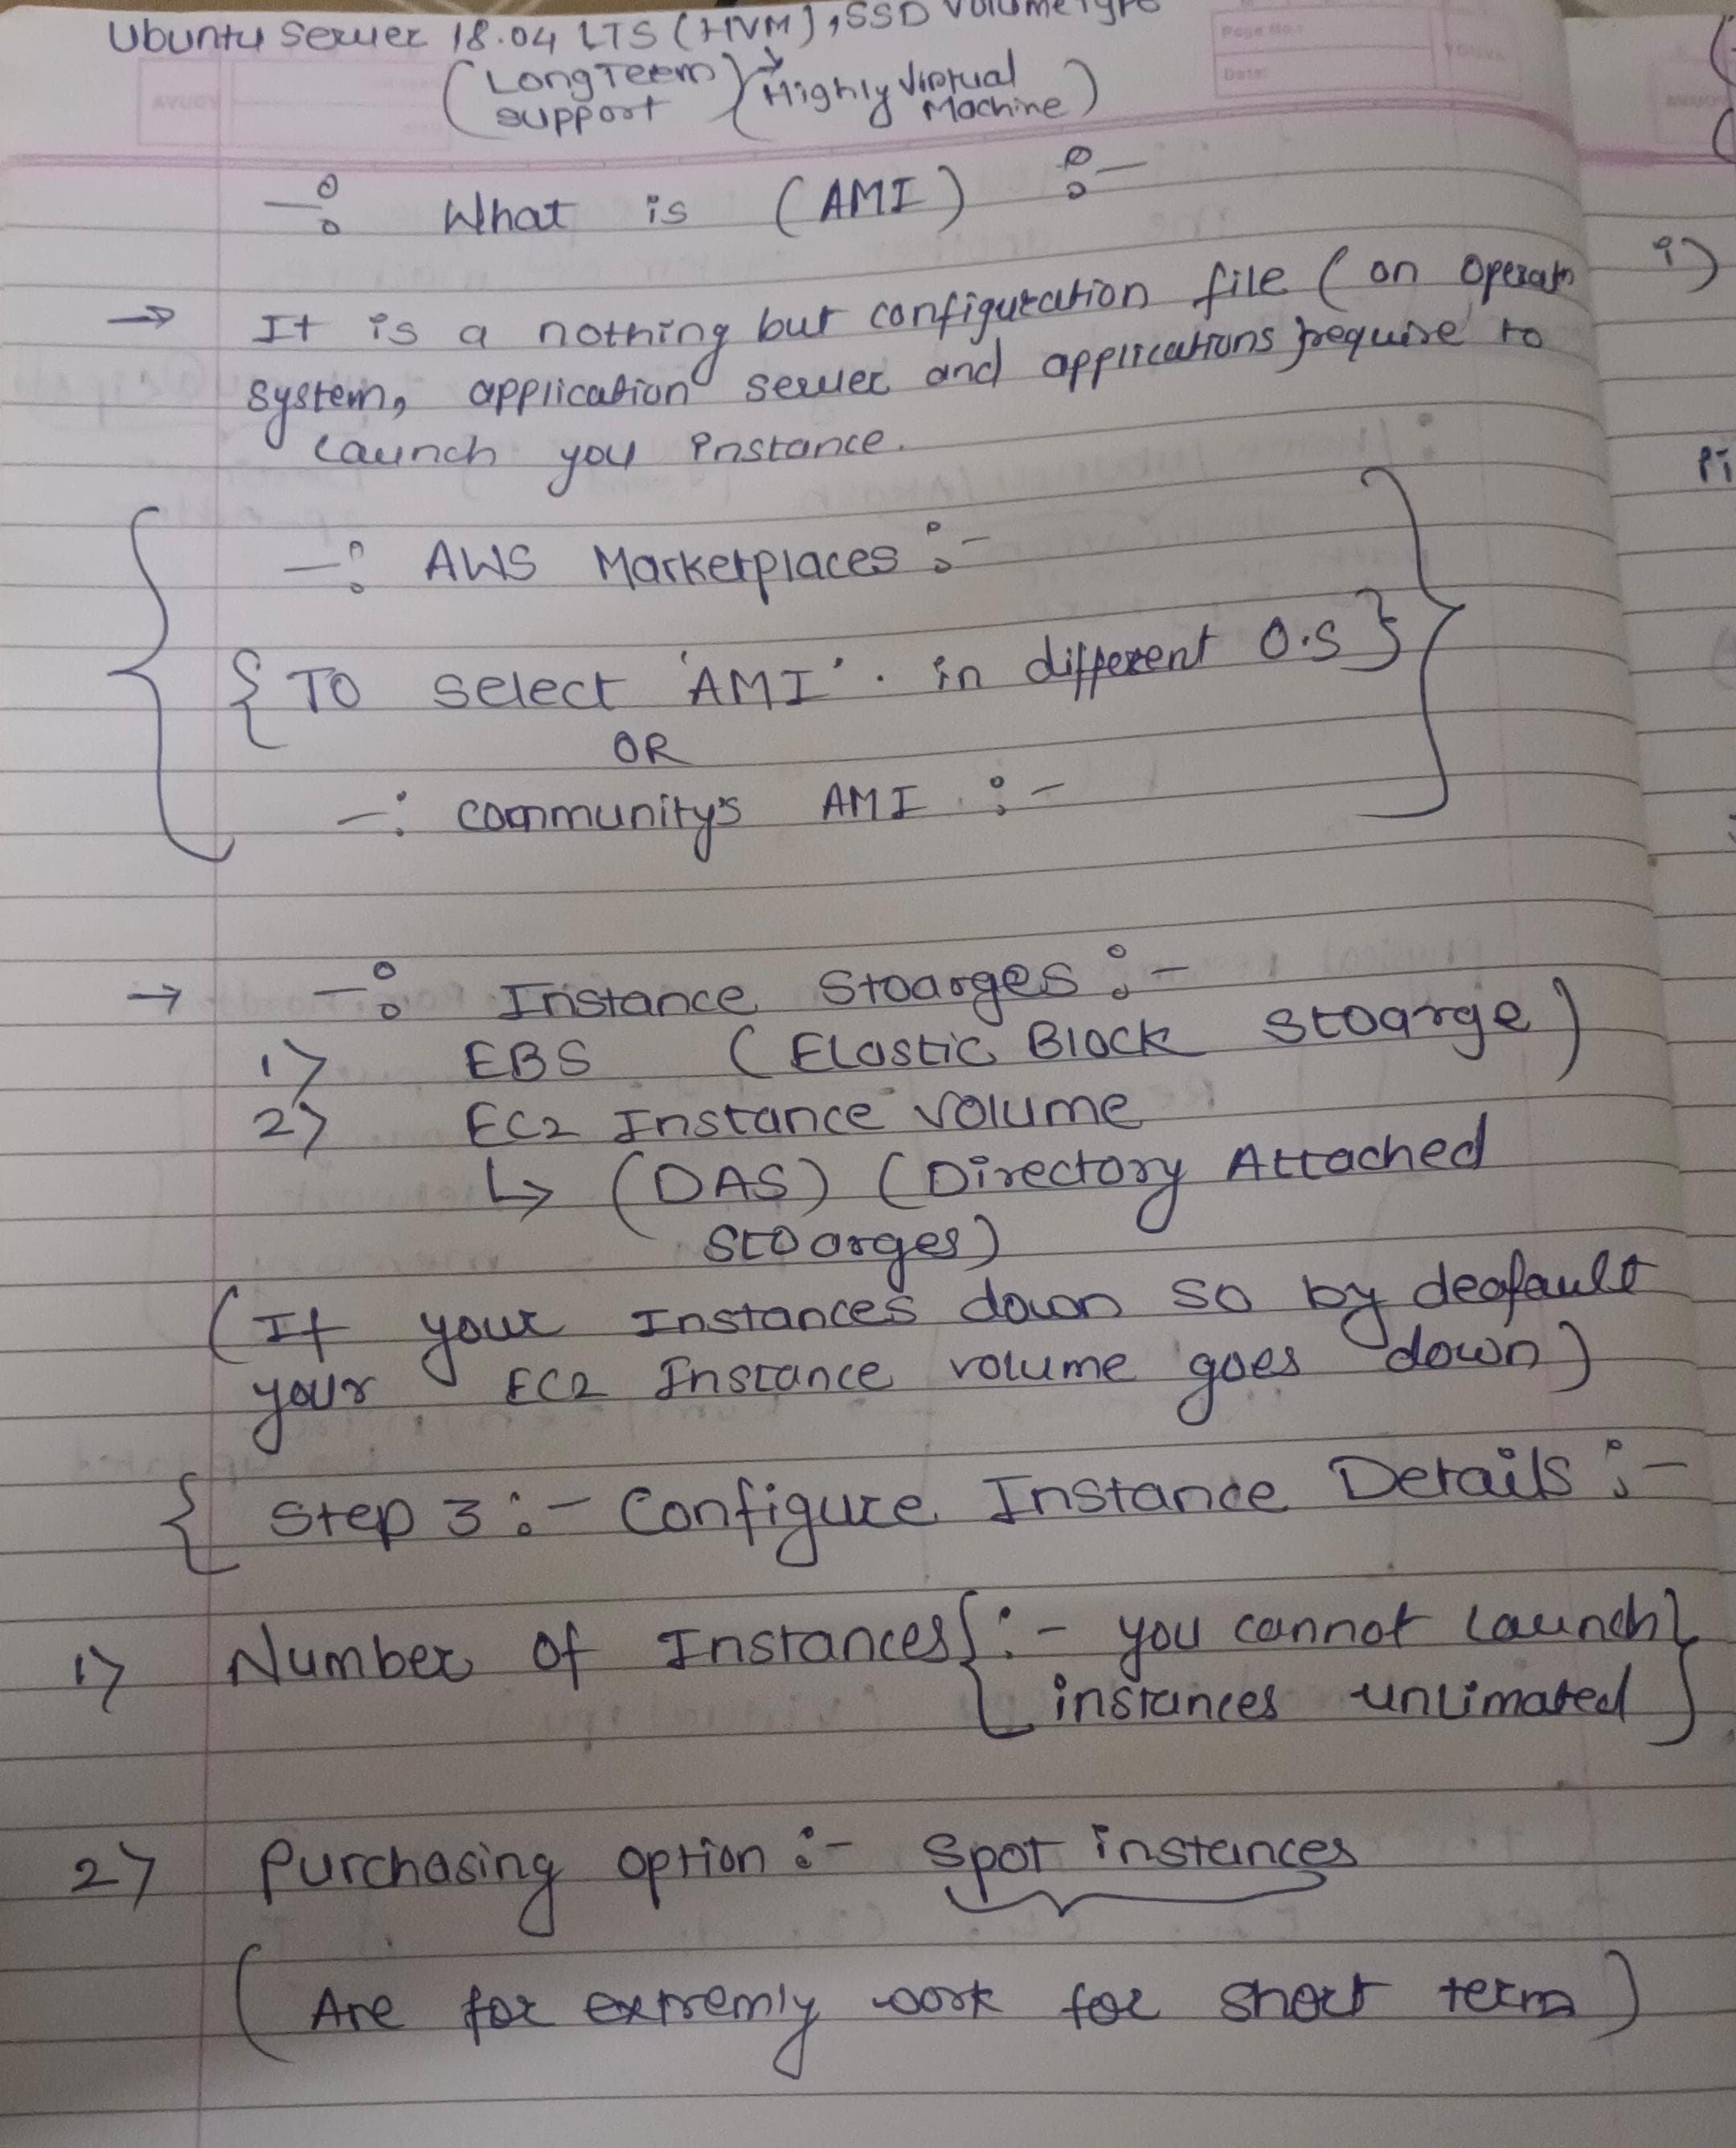 Ubuntu Server 18.04 LTS (HVM), SSD Volume Type
(Long Teerm support) (Highly Virtual Machine)
What is (AMI) :-
→ It is a nothing but configuration file (on Operatn
system, application server and applications require to
launch you instance.
-: AWS Marketplaces :-
{ TO select 'AMI'. in different O.S }
OR
-: community's AMI :-
→ -: Instance Stoarges :-
1> EBS (Elastic Block stoarge)
2> EC2 Instance volume
↳ (DAS) (Directory Attached
stoarges)
(If your Instances down so by deafault
your EC2 Instance volume goes down)
{ Step 3 :- Configure Instance Details :-
1> Number of Instances { :- you cannot launch
instances unlimated }
2> Purchasing option :- Spot instances
(Are for extremly work for short term)